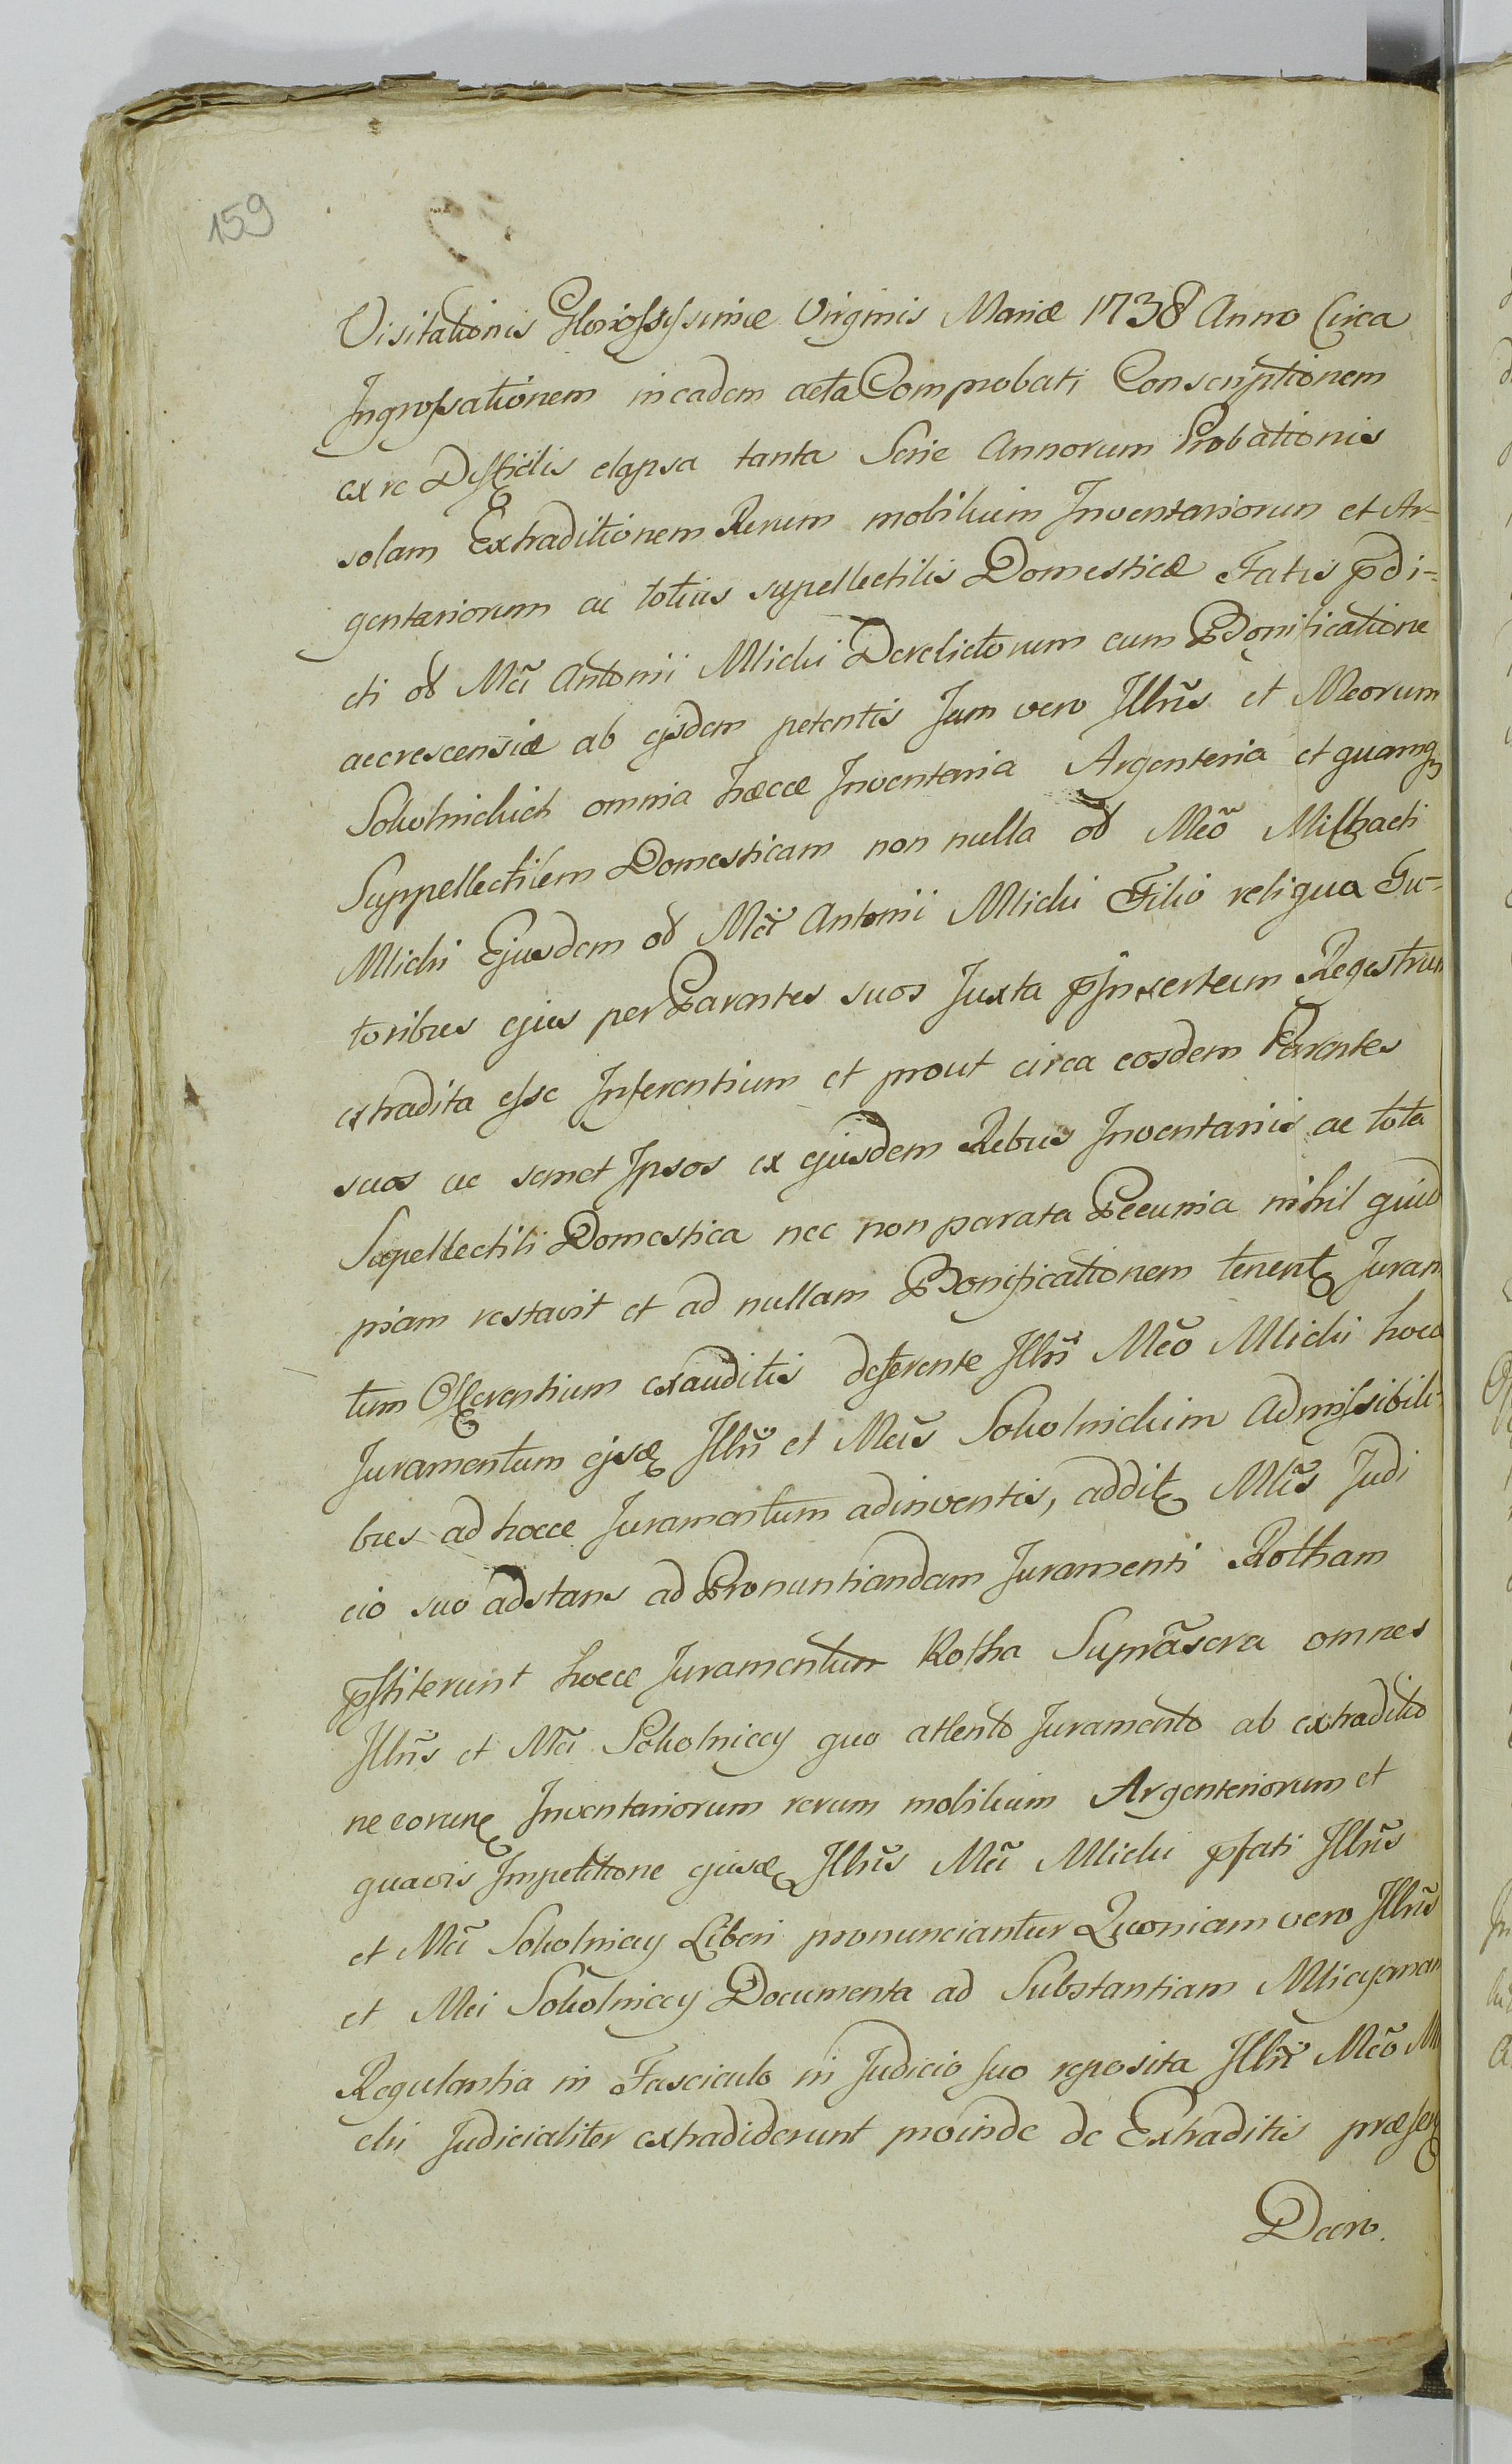 159
Visitationis Gloriossyssimæ Virginis Mariæ 1738 Anno Circa
Ingrossationem in eadem acta Comprobati Conscriptionem
ex re Difficilis elapsa tanta Serie Annorum Probationis
solam Extraditionem Rerum mobilium Inventariorum et Ar-
gentariorum ac totius supellectilis Domesticæ Fatis pdi=
cti od Mci Antonii Mlicki Derelictorum cum Bonificatione
accrescensiæ ab ejsdem petentis Jam vero Illrus et Mcorum
Sokolnickich omnia hæcce Inventaria Argenteria et quamq
Suppellectilem Domesticam non nulla od Mco Michaeli
Mlicki Ejusdem od Mci Antonii Mlicki Filio reliqua Tu-
toribus ejus per Parentes suos Juxta pInsertum Regestrum
extradita esse Inferentium et prout circa eosdem Parentes
suos ac semet Ipsos ex ejusdem Rebus Inventariis ac tota
Supellectili Domestica nec non parata Pecunia nihil quid
piam restavit et ad nullam Bonificationem tenent Juram
tum Offerentium exauditis deferente Illri Mco Mlicki hocce
Juramentum ejsd Illri et Mcis Sokolnickim Admissibili-
bus ad hocce Juramentum adinventis, addit Mlis Judi
cio suo adstans ad Pronuntiandam Juramenti Rotham
pstiterunt hocce Juramentum Rotha Suprascra omnes
Illrus et Mci Sokolniccy quo attento Juramento ab extraditio
ne eorund Inventariorum rerum mobilium Argenteriorum et
quavis Impetitione ejusd Illrus Mci Mlicki pfati Illrus
et Mci Sokolniccy Liberi pronunciantur Quoniam vero Illrus
et Mci Sokolniccy Documenta ad Substantiam Mlicyanam
Regulantia in Fasciculo in Judicio suo reposita Illri Mco Ml
cki Judicialiter extradiderunt proinde de Extraditis præsen
Decro.